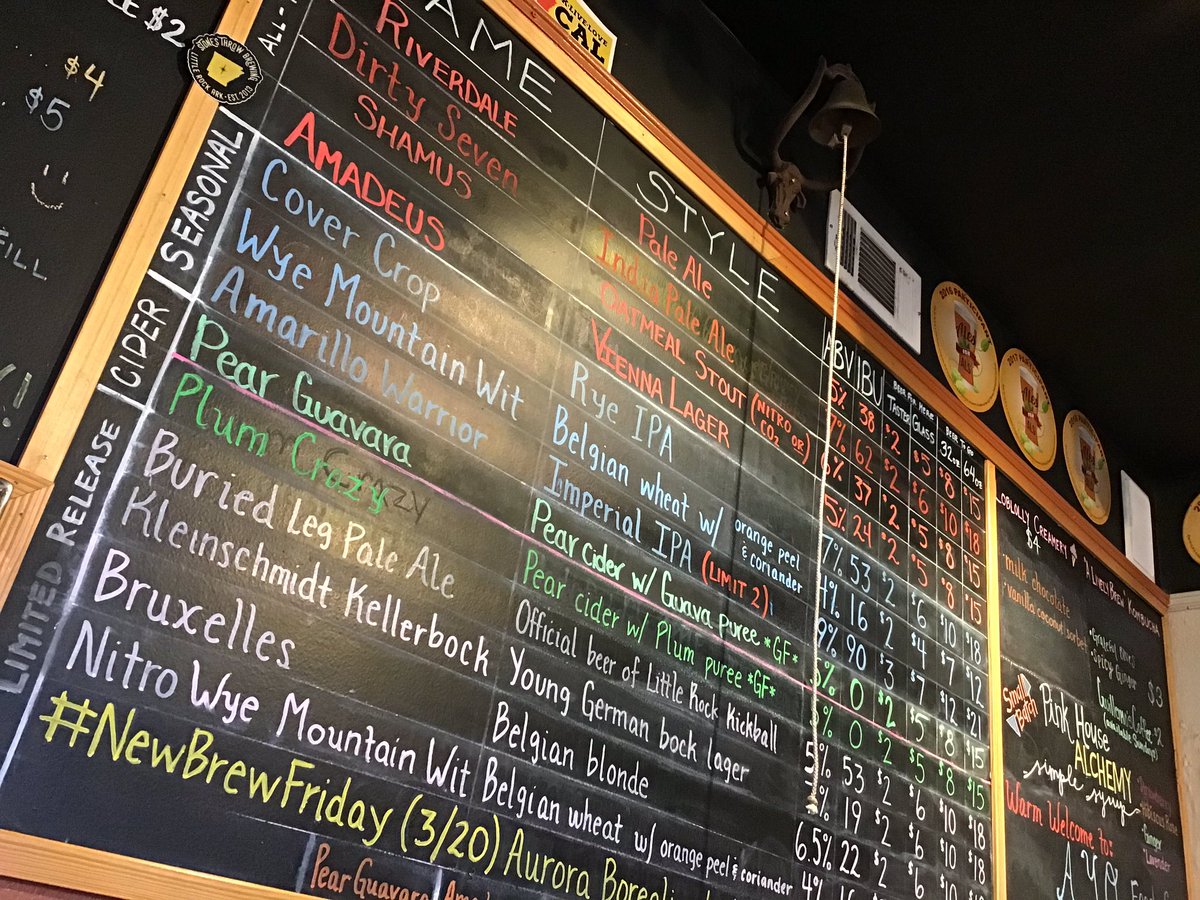 $2
$4
$5
STONE'S THROW BREWING
LITTLE ROCK ARK · EST 2013
LIVELOVE
CAL
AME STYLE ABV IBU TASTER GLASS 32oz 64oz
BEER FOR HERE BEER TO GO
RIVERDALE Pale Ale 5% 38 $2 $5 $8 $15
Dirty Seven India Pale Ale 7% 62 $2 $6 $10 $18
SHAMUS OATMEAL STOUT (NITRO OR CO2) 6% 37 $2 $5 $8 $15
AMADEUS VIENNA LAGER 5% 24 $2 $5 $8 $15
SEASONAL
Cover Crop Rye IPA 7% 53 $2 $6 $10 $18
Wye Mountain Wit Belgian wheat w/ orange peel & coriander 4% 16 $2 $4 $7 $12
Amarillo Warrior Imperial IPA (LIMIT 2) 9% 90 $3 $7 $12 $21
CIDER
Pear Guavara Pear cider w/ Guava puree *GF* 5% 0 $2 $5 $8 $15
Plum Crazy Pear cider w/ Plum puree *GF* 5% 0 $2 $5 $8 $15
LIMITED RELEASE
Buried Leg Pale Ale Official beer of Little Rock Kickball 5% 53 $2 $6 $10 $18
Kleinschmidt Kellerbock Young German bock lager 19 $2 $6 $10 $18
Bruxelles Belgian blonde 6.5% 22 $2 $6 $10 $18
Nitro Wye Mountain Wit Belgian wheat w/ orange peel & coriander 4% 16
#NewBrewFriday (3/20) Aurora
Pear Guavara
LOBLOLLY CREAMERY
$4
milk chocolate
vanilla coconut sorbet
A LIVELY BREW KOMBUCHA
Spicy Ginger
$3
$2
Small Batch
Pink House
ALCHEMY
simple syrup
Ginger
Lavender
Warm Welcome to:
2016 PARTICIPANT
2017 PARTICIPANT